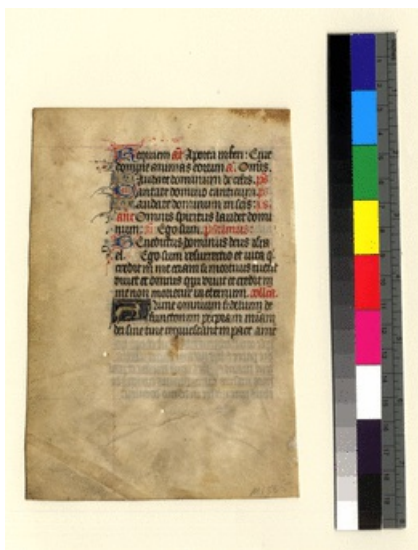 Requiem añ A porta inferi: Erue
domine animas eorum a. Omīs.
Laudate dominum de celis. ps
Cantate domino canticum. ps
Laudate dominum in scīs: a s.
anc Omnis spiritus laudet domi
num: añ Ego sum. psalmus:
Benedictus dominus deus isra
el. Ego sum resurrectio et uita q̄
credit in me etiam si mortuus fuerit
uiuet et omnis qui uiuit et credit in
me non morietur in eternum. collect.
omnium fidelium de
functorum per
dei sine fine requiescant in pace amē